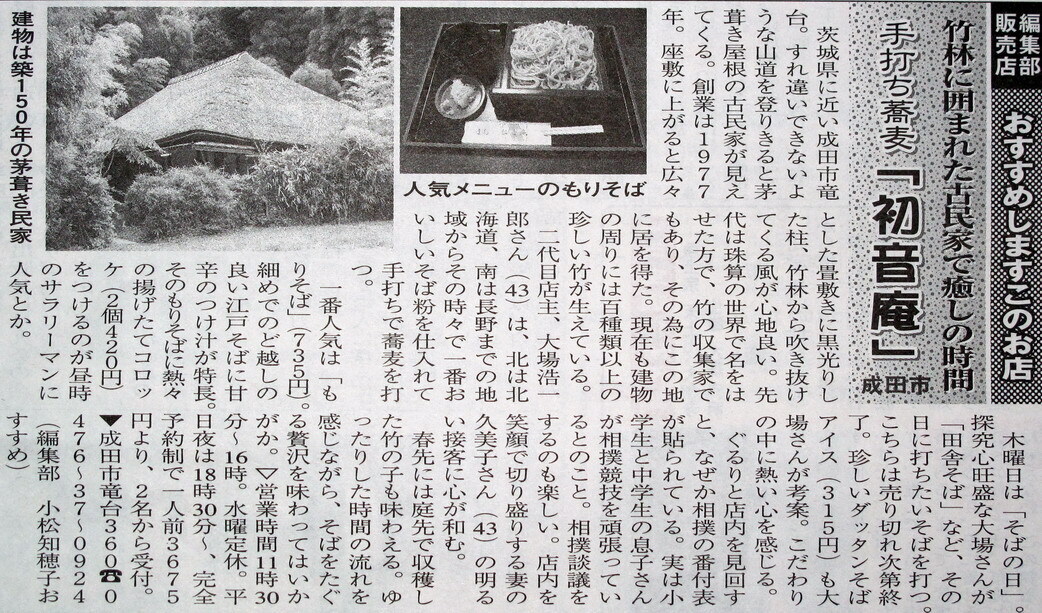 編集部
販売店
おすすめしますこのお店
竹林に囲まれた古民家で癒しの時間
手打ち蕎麦「初音庵」
成田市
茨城県に近い成田市竜
台。すれ違いできないよ
うな山道を登りきると茅
葺き屋根の古民家が見え
てくる。創業は1977
年。座敷に上がると広々
とした畳敷きに黒光りし
た柱、竹林から吹き抜け
てくる風が心地良い。先
代は珠算の世界で名をは
せた方で、竹の収集家で
もあり、その為にこの地
に居を得た。現在も建物
の周りには百種類以上の
珍しい竹が生えている。
二代目店主、大場浩一
郎さん(43)は、北は北
海道、南は長野までの地
域からその時々で一番お
いしいそば粉を仕入れて
手打ちで蕎麦を打
つ。
一番人気は「も
りそば」(735円)。
細めでのど越しの
良い江戸そばに甘
辛のつけ汁が特長。
そのもりそばに熱々
の揚げたてコロッ
ケ(2個420円)
をつけるのが昼時
のサラリーマンに
人気とか。
木曜日は「そばの日」。
探究心旺盛な大場さんが
「田舎そば」など、その
日に打ちたいそばを打つ。
こちらは売り切れ次第終
了。珍しいダッタンそば
アイス(315円)も大
場さんが考案。こだわり
の中に熱い心を感じる。
ぐるりと店内を見回す
と、なぜか相撲の番付表
が貼られている。実は小
学生と中学生の息子さん
が相撲競技を頑張ってい
るとのこと。相撲談議を
するのも楽しい。店内を
笑顔で切り盛りする妻の
久美子さん(43)の明る
い接客に心が和む。
春先には庭先で収穫し
た竹の子も味わえる。ゆ
ったりした時間の流れを
感じながら、そばをたぐ
る贅沢を味わってはいか
がか。▽営業時間11時30
分～16時。水曜定休。平
日夜は18時30分～、完全
予約制で一人前3675
円より、2名から受付。
▼成田市竜台360☎0
476～37～0924
(編集部 小松知穂子お
すすめ)
人気メニューのもりそば
建物は築150年の茅葺き民家